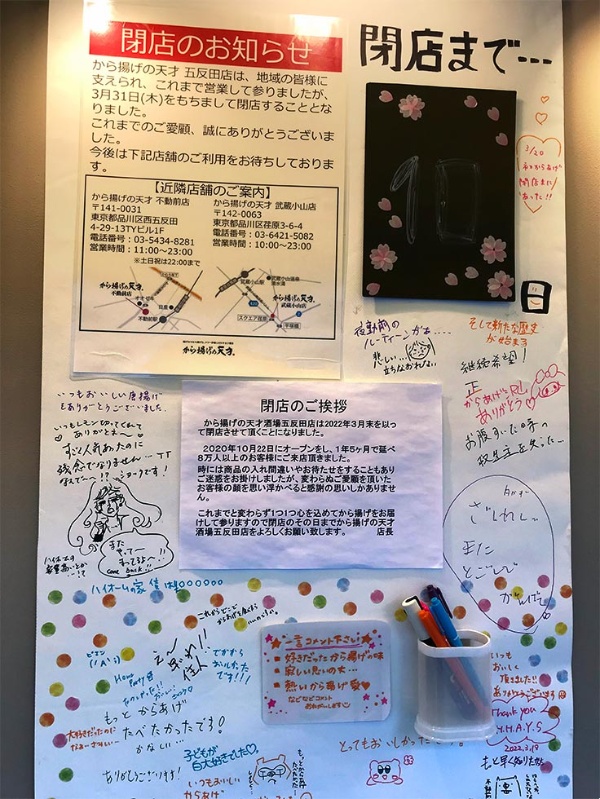 閉店のお知らせ
から揚げの天才 五反田店は、地域の皆様に
支えられ、これまで営業して参りましたが、
3月31日(木)をもちまして閉店することとな
りました。
これまでのご愛顧、誠にありがとうございま
した。
今後は下記店舗のご利用をお待ちしておりま
す。
【近隣店舗のご案内】
から揚げの天才 不動前店
〒141-0031
東京都品川区西五反田
4-29-13TYビル1F
電話番号:03-5434-8281
営業時間:11:00~23:00
※土日祝は22:00まで
から揚げの天才 武蔵小山店
〒142-0063
東京都品川区荏原3-6-4
電話番号:03-6421-5082
営業時間:10:00~23:00
から揚げの天才
不動前店
不動前駅
武蔵小山駅
から揚げの天才
武蔵小山店
スクエア荏原
平塚橋
から揚げの天才
閉店まで…
10
日
3/20
閉店まに
あった!!
夜勤前の
ルーティーンがぁ....
悲しい…
立ちなおれない
そして新たな歴史
が始まる
継続希望!
からあげに
ありがとう
お腹すいた時の
救世主を失った…
閉店のご挨拶
から揚げの天才酒場五反田店は2022年3月末を以っ
て閉店させて頂くことになりました。
2020年10月22日にオープンをし、1年5ヶ月で延べ
8万人以上のお客様にご来店頂きました。
時には商品の入れ間違いやお待たせをすることもあり
ご迷惑をお掛けしましたが、変わらぬご愛顧を頂いた
お客様の顔を思い浮かべると感謝の思いしかありませ
ん。
これまでと変わらず1つ1つ心を込めてから揚げをお届
けして参りますので閉店のその日までから揚げの天才
酒場五反田店をよろしくお願い致します。 店長
いつもおいしい唐揚げ
ありがとうございました
いつもレモン切ってくれて
ありがとネ~♡
すごく人気あったのに
残念でなりません…TT
なんで~!?
また
やって
come back!!
さびしい
また
どこかで
ハイボールの家
ですから
おいしかった
です!!!
もっと からあげ
たべたかったです!
かなしい…
大好きだったのに
ありがとうございます!
子どもが
大好きでした♡
いつもおいしい
からあげ
一言コメント下さい!
■好きだったから揚げの味
■寂しい思いの丈…
■熱いから揚げ愛♥
などなどコメント
お待ちしてます
とってもおいしかったです!
いつも
おいしく
頂きました!!
ありがとうございます
Thank you
Y.H.A.Y.S
2022.3.19
もっと早く知りたかった